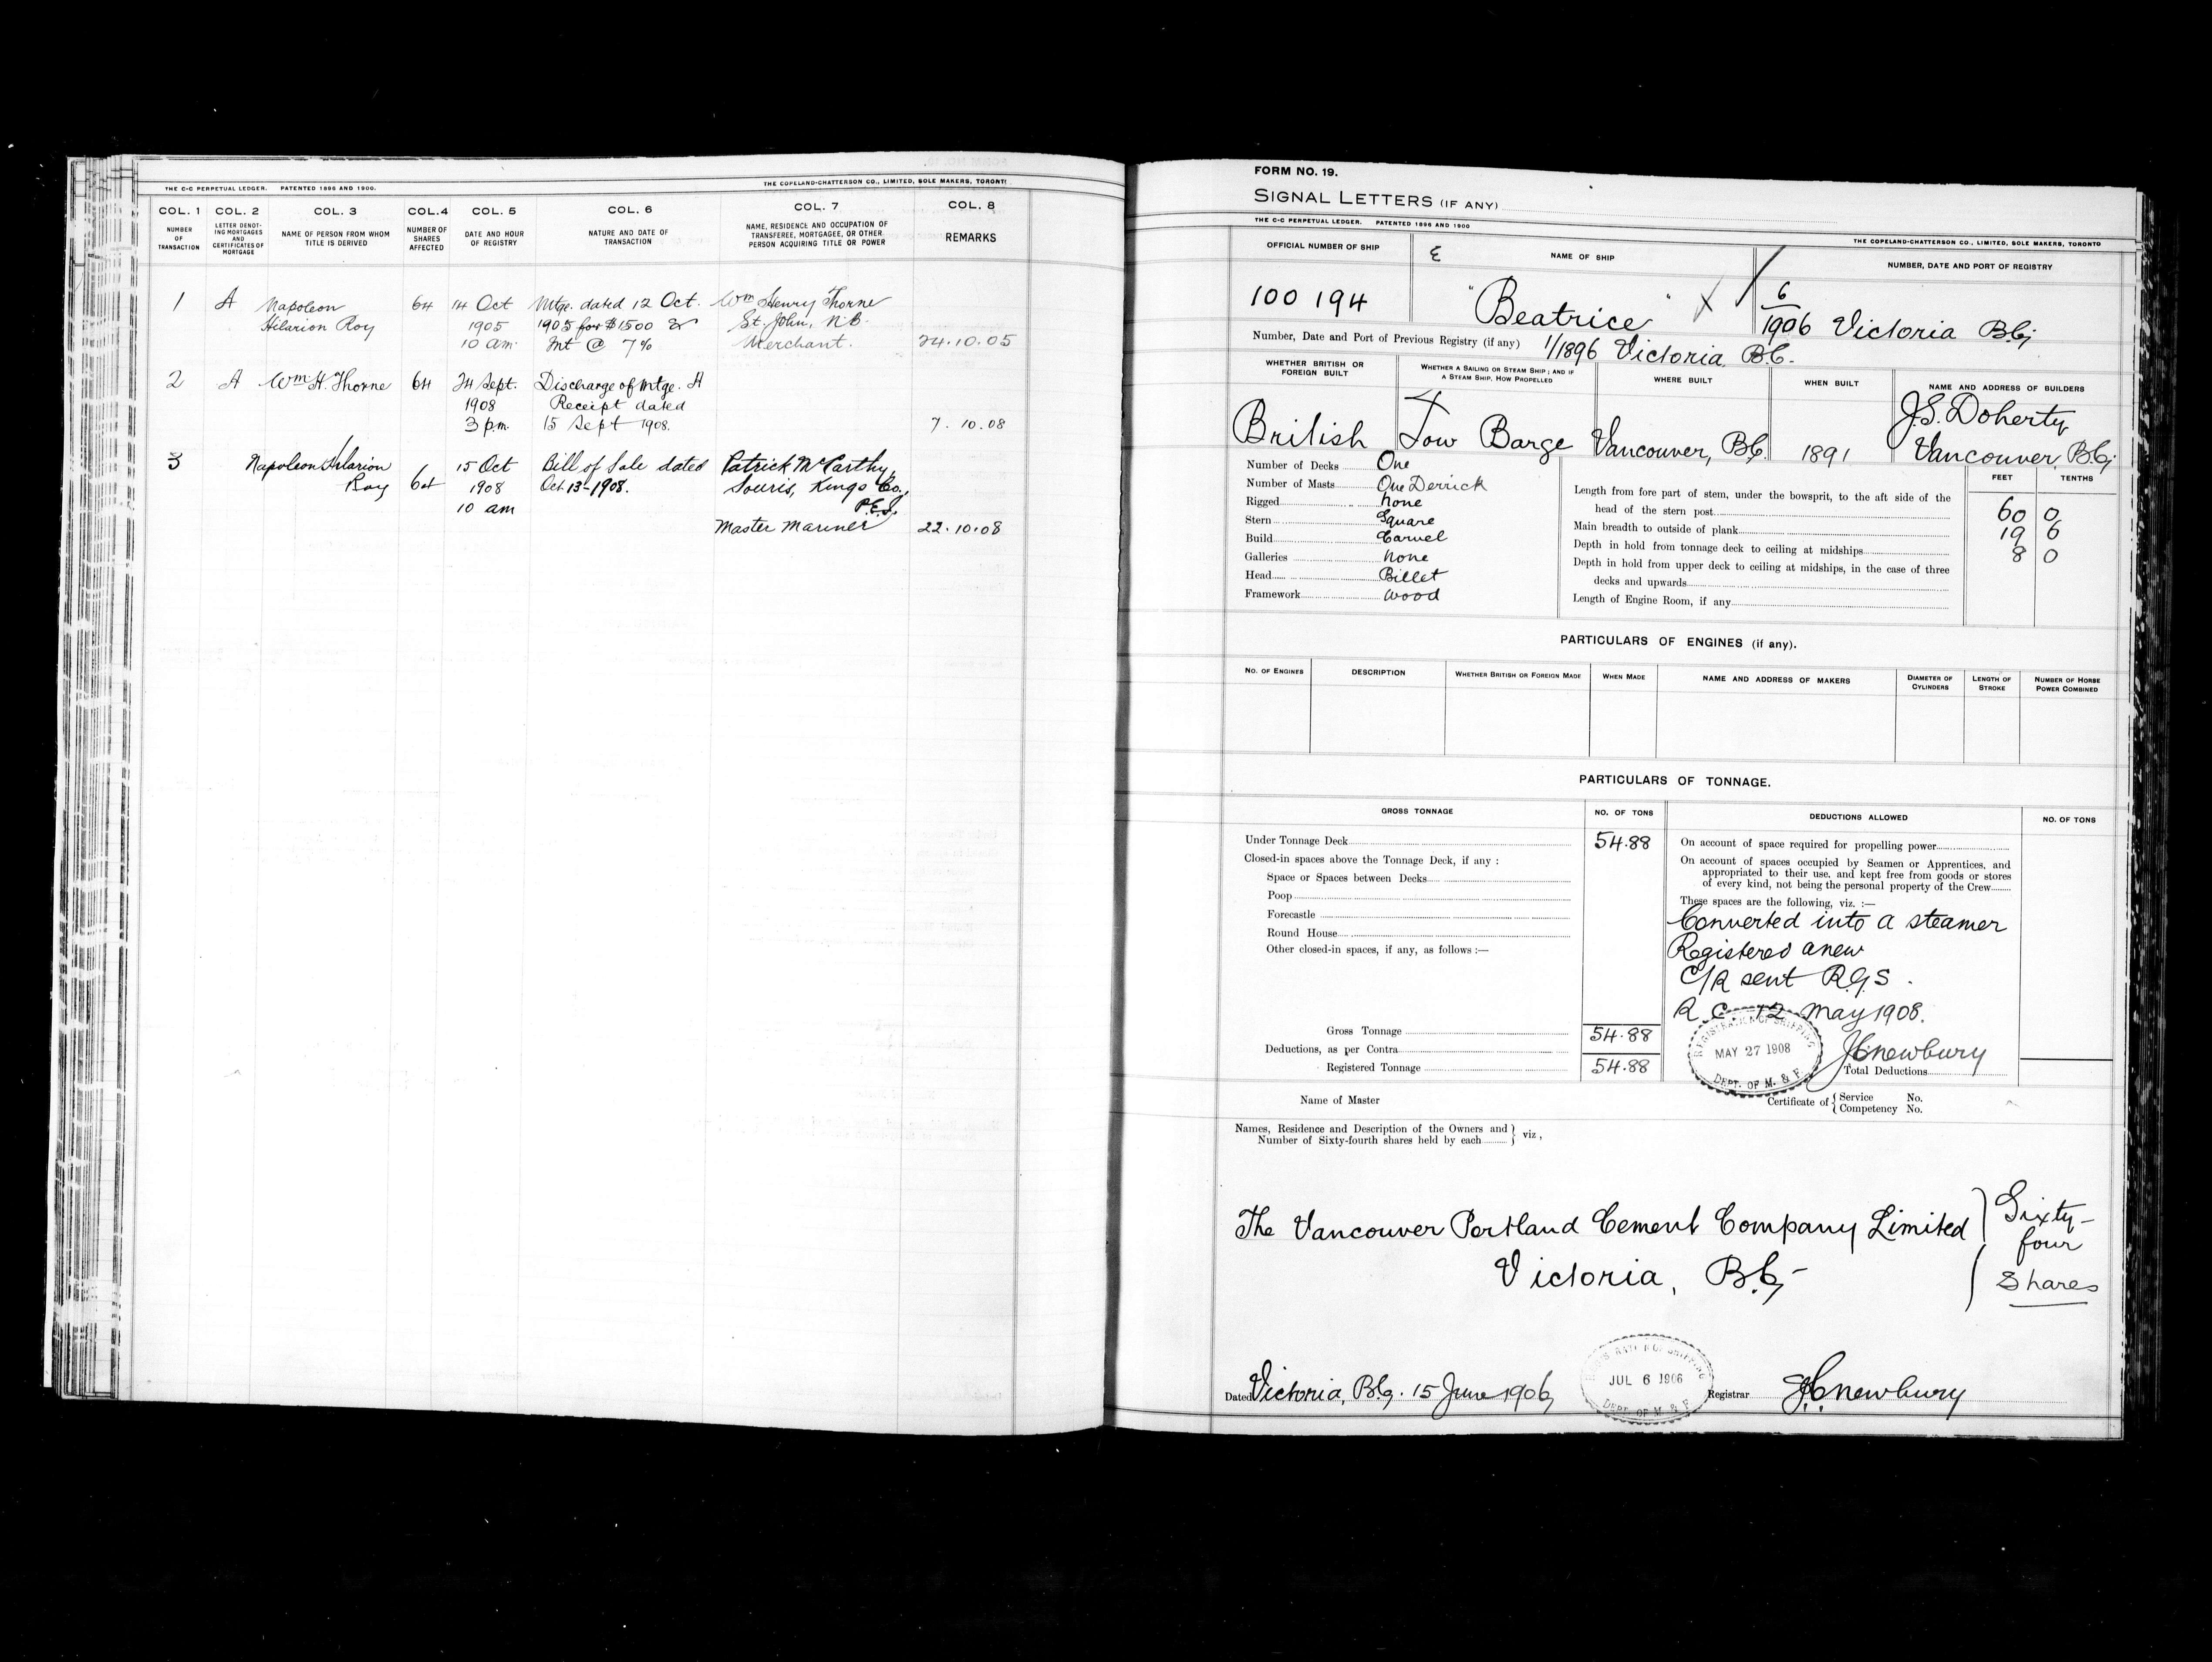 THE C-C PERPETUAL LEDGER. PATENTED 1896 AND 1900.
THE COPELAND-CHATTERSON CO., LIMITED, SOLE MAKERS, TORONTO
COL. 1 COL. 2 COL. 3 COL. 4 COL. 5 COL. 6 COL. 7 COL. 8
NUMBER OF TRANSACTION
LETTER DENOT-ING MORTGAGES AND CERTIFICATES OF MORTGAGE
NAME OF PERSON FROM WHOM TITLE IS DERIVED
NUMBER OF SHARES AFFECTED
DATE AND HOUR OF REGISTRY
NATURE AND DATE OF TRANSACTION
NAME, RESIDENCE AND OCCUPATION OF TRANSFEREE, MORTGAGEE, OR OTHER PERSON ACQUIRING TITLE OR POWER
REMARKS
1 A Napoleon 64 14 Oct Mtge. dated 12 Oct. Wm Henry Thorne
Hilarion Roy 1905 1905 for $1500 & St. John, N.B.
10 am. Int @ 7% Merchant. 24.10.05
2 A Wm H. Thorne 64 24 Sept. Discharge of Mtge. A
1908 Receipt dated
3 p.m. 15 Sept 1908. 7.10.08
3 Napoleon Hilarion 15 Oct Bill of Sale dated Patrick McCarthy,
Roy 64 1908 Oct. 13-1908. Souris, Kings Co.,
10 am P.E.I.
Master Mariner 22.10.08
FORM NO. 19.
SIGNAL LETTERS (IF ANY)
THE C-C PERPETUAL LEDGER. PATENTED 1896 AND 1900
THE COPELAND-CHATTERSON CO., LIMITED, SOLE MAKERS, TORONTO
OFFICIAL NUMBER OF SHIP NAME OF SHIP NUMBER, DATE AND PORT OF REGISTRY
100 194 "Beatrice" X 6/1906 Victoria B.C.
Number, Date and Port of Previous Registry (if any) 1/1896 Victoria, B.C.
WHETHER BRITISH OR FOREIGN BUILT
WHETHER A SAILING OR STEAM SHIP; AND IF A STEAM SHIP, HOW PROPELLED
WHERE BUILT
WHEN BUILT
NAME AND ADDRESS OF BUILDERS
J.S. Doherty
British Tow Barge Vancouver, B.C. 1891 Vancouver, B.C.
Number of Decks One
Number of Masts One Derrick
Rigged None
Stern Square
Build Carvel
Galleries None
Head Billet
Framework Wood
FEET TENTHS
Length from fore part of stem, under the bowsprit, to the aft side of the
head of the stern post 60 0
Main breadth to outside of plank 19 6
Depth in hold from tonnage deck to ceiling at midships 8 0
Depth in hold from upper deck to ceiling at midships, in the case of three
decks and upwards
Length of Engine Room, if any
PARTICULARS OF ENGINES (if any).
NO. OF ENGINES DESCRIPTION WHETHER BRITISH OR FOREIGN MADE WHEN MADE NAME AND ADDRESS OF MAKERS DIAMETER OF CYLINDERS LENGTH OF STROKE NUMBER OF HORSE POWER COMBINED
PARTICULARS OF TONNAGE.
GROSS TONNAGE NO. OF TONS DEDUCTIONS ALLOWED NO. OF TONS
Under Tonnage Deck 54.88
Closed-in spaces above the Tonnage Deck, if any :
Space or Spaces between Decks
Poop
Forecastle
Round House
Other closed-in spaces, if any, as follows :—
Gross Tonnage 54.88
Deductions, as per Contra
Registered Tonnage 54.88
On account of space required for propelling power
On account of spaces occupied by Seamen or Apprentices, and
appropriated to their use, and kept free from goods or stores
of every kind, not being the personal property of the Crew
These spaces are the following, viz. :—
Converted into a steamer
Registered anew
C/R sent R.G.S.
R.C. 12 May 1908.
REGISTRATION OF SHIPPING
MAY 27 1908
DEPT. OF M. & F.
J.C. Newbury
Total Deductions
Name of Master
Certificate of { Service No.
Competency No.
Names, Residence and Description of the Owners and
Number of Sixty-fourth shares held by each } viz,
The Vancouver Portland Cement Company Limited
Victoria, B.C.
Sixty-
four
Shares
Dated Victoria, B.C. 15 June 1906
JUL 6 1906
DEPT. OF M. & F.
Registrar J.C. Newbury